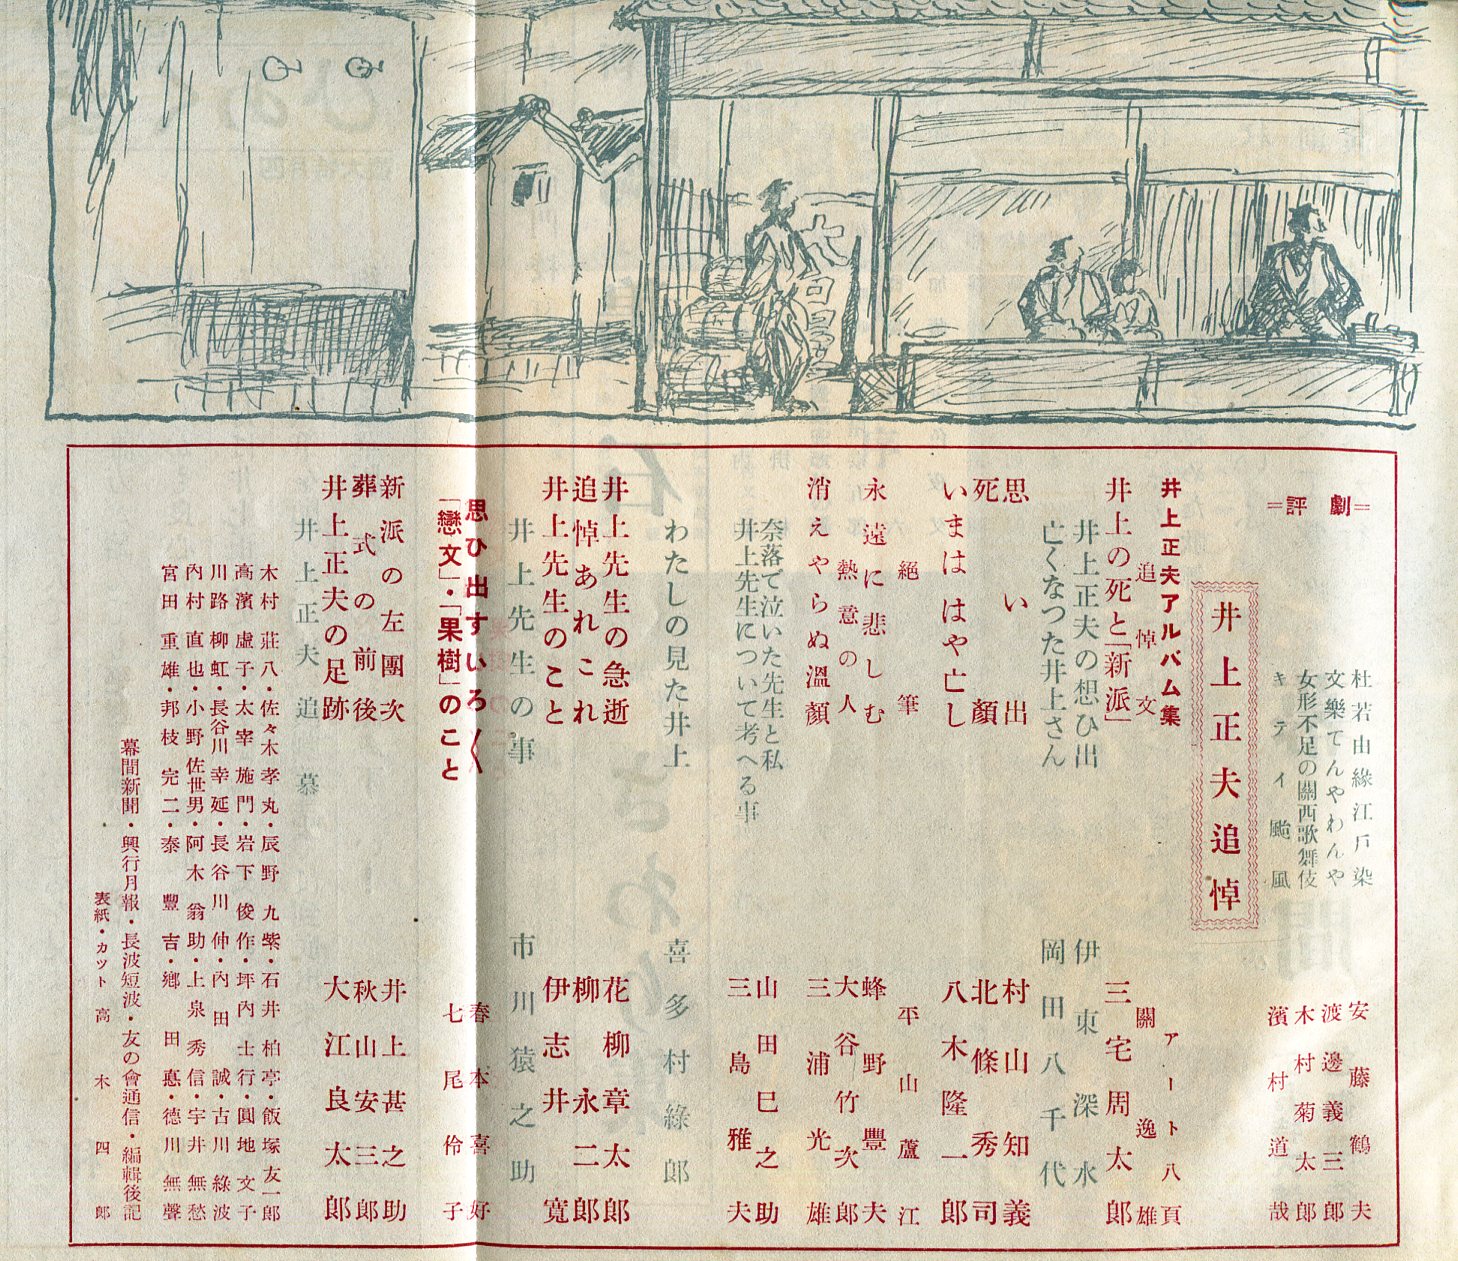 ＝劇評＝
杜若由緣江戸染　安藤鶴夫
文樂てんやわんや　渡邊義三郎
女形不足の關西歌舞伎　木村菊太郎
キティ颱風　濱村道哉
井上正夫追悼
井上正夫アルバム集　アート八頁
追悼文　關逸雄
井上の死と「新派」　三宅周太郎
井上正夫の想ひ出　伊東深水
亡くなつた井上さん　岡田八千代
思い出　村山知義
死顏　北條秀司
いまははや亡し　八木隆一郎
絕筆　平山蘆江
永遠に悲しむ　蜂野豐夫
熱意の人　大谷竹次郎
消えやらぬ溫顏　三浦光雄
奈落で泣いた先生と私　山田巳之助
井上先生について考へる事　三島雅夫
わたしの見た井上　喜多村綠郎
井上先生の事　市川猿之助
井上先生の急逝　花柳章太郎
追悼あれこれ　柳永二郎
井上先生のこと　伊志井寬
思ひ出すいろ〱　春本喜好
「戀文」・「果樹」のこと　七尾伶子
新派の左團次　井上甚之助
葬式の前後　秋山安三郎
井上正夫の足跡　大江良太郎
井上正夫追慕
木村莊八・佐々木孝丸・辰野九紫・石井柏亭・飯塚友一郎
高濱虛子・太宰施門・岩下俊作・坪內士行・圓地文子
川路柳虹・長谷川幸延・長谷川伸・內田誠・古川綠波
內村直也・小野佐世男・阿木翁助・上泉秀信・宇井無愁
宮田重雄・邦枝完二・泰豐吉・鄕田悳・德川無聲
幕間新聞・興行月報・長波短波・友の會通信・編輯後記
表紙・カット　高木四郎